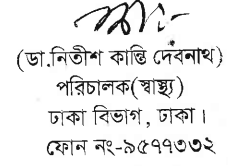 (ডা.নিতীশ কান্তি দেবনাথ)
পরিচালক(স্বাস্থ্য)
ঢাকা বিভাগ, ঢাকা।
ফোন নং-৯৫৭৭৩৩২